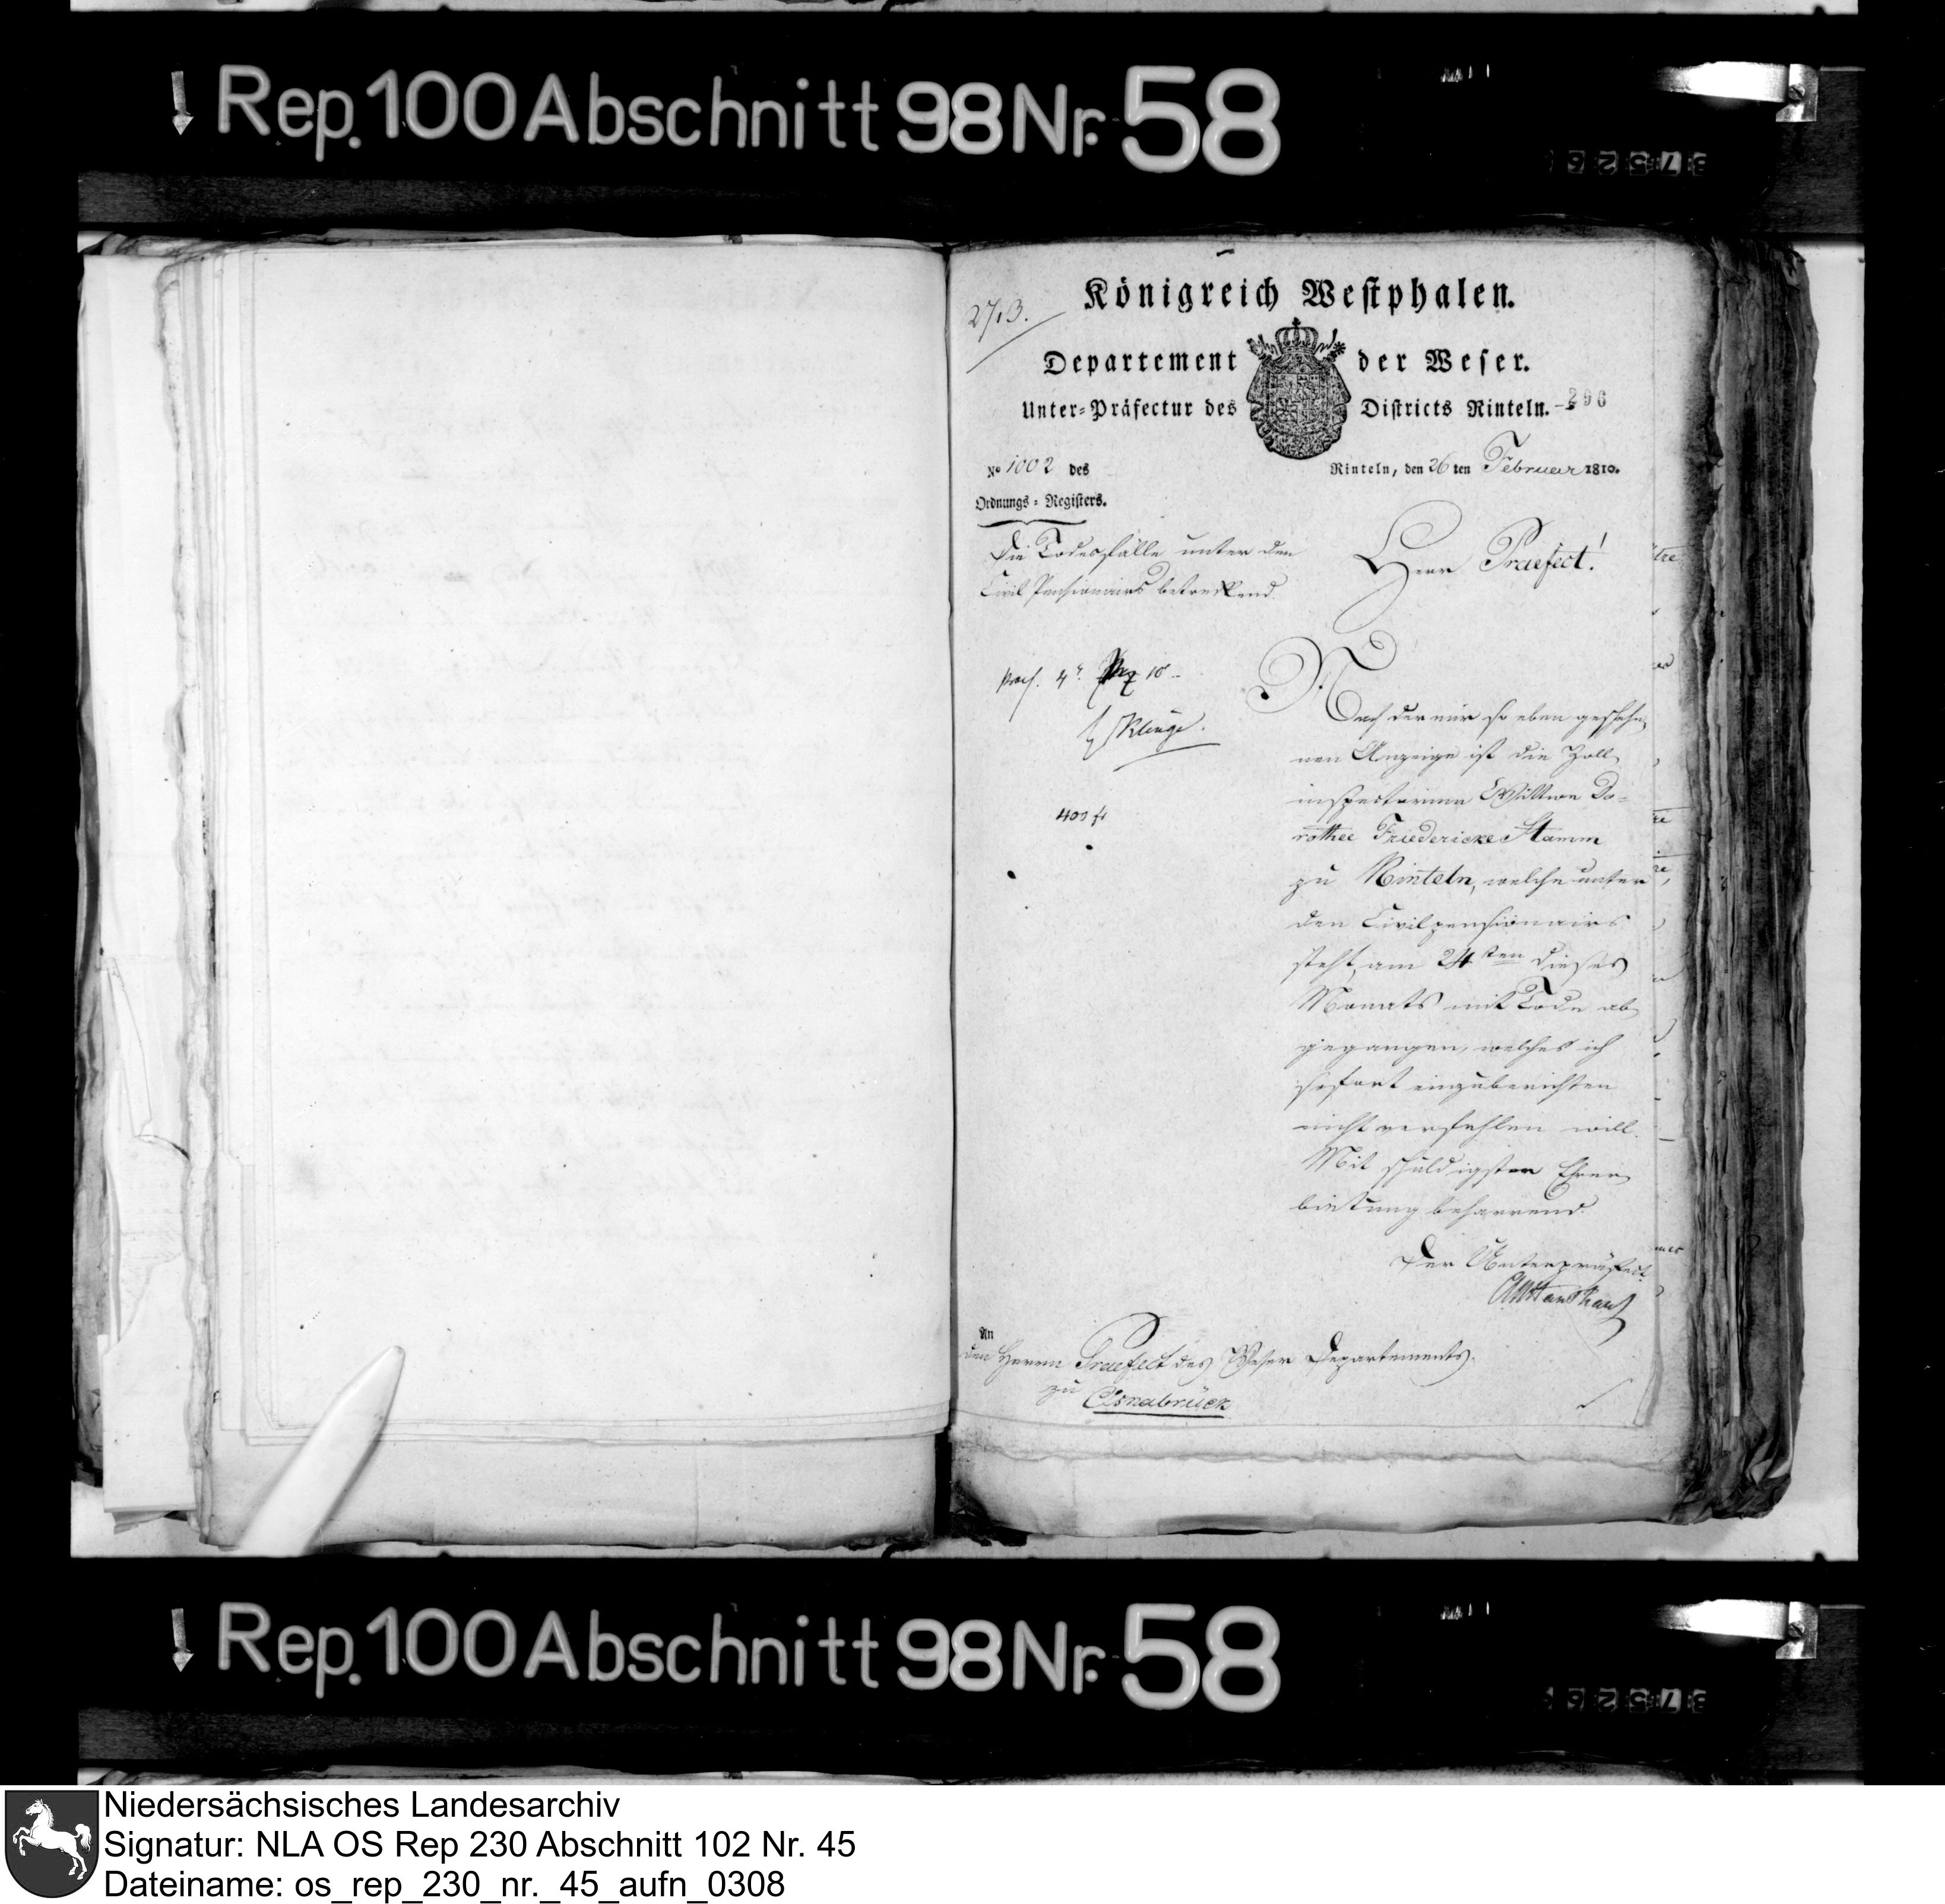 Rep. 100 Abschnitt 98 Nr. 58
Königreich Westphalen.
2713.
Departement der Weser.
Unter-Präfectur des Districts Rinteln.
296
No 1002 des
Ordnungs-Registers.
Rinteln, den 26 ten Februar 1810.
Die Todesfälle unter den
Civil Pensionairs betreffend
Herr Praefect!
400 fr
Nach der mir so eben gescheh-
nen Anzeige ist die Zoll-
inspectorinn Wittwe Do-
rothee Friedericke Stamm
zu Rinteln, welche unter
den Civilpensionairs
steht, am 24sten dieses
Monats mit Tode ab-
gegangen, welches ich
sofort einzuberichten
nicht verfehlen will.
Mit schuldigster Ehrer-
bietung beharrend.
Der Unterpräfect
An
den Herrn Praefect des Weser Departements.
zu Osnabrück
Rep. 100 Abschnitt 98 Nr. 58
Niedersächsisches Landesarchiv
Signatur: NLA OS Rep 230 Abschnitt 102 Nr. 45
Dateiname: os_rep_230_nr._45_aufn_0308